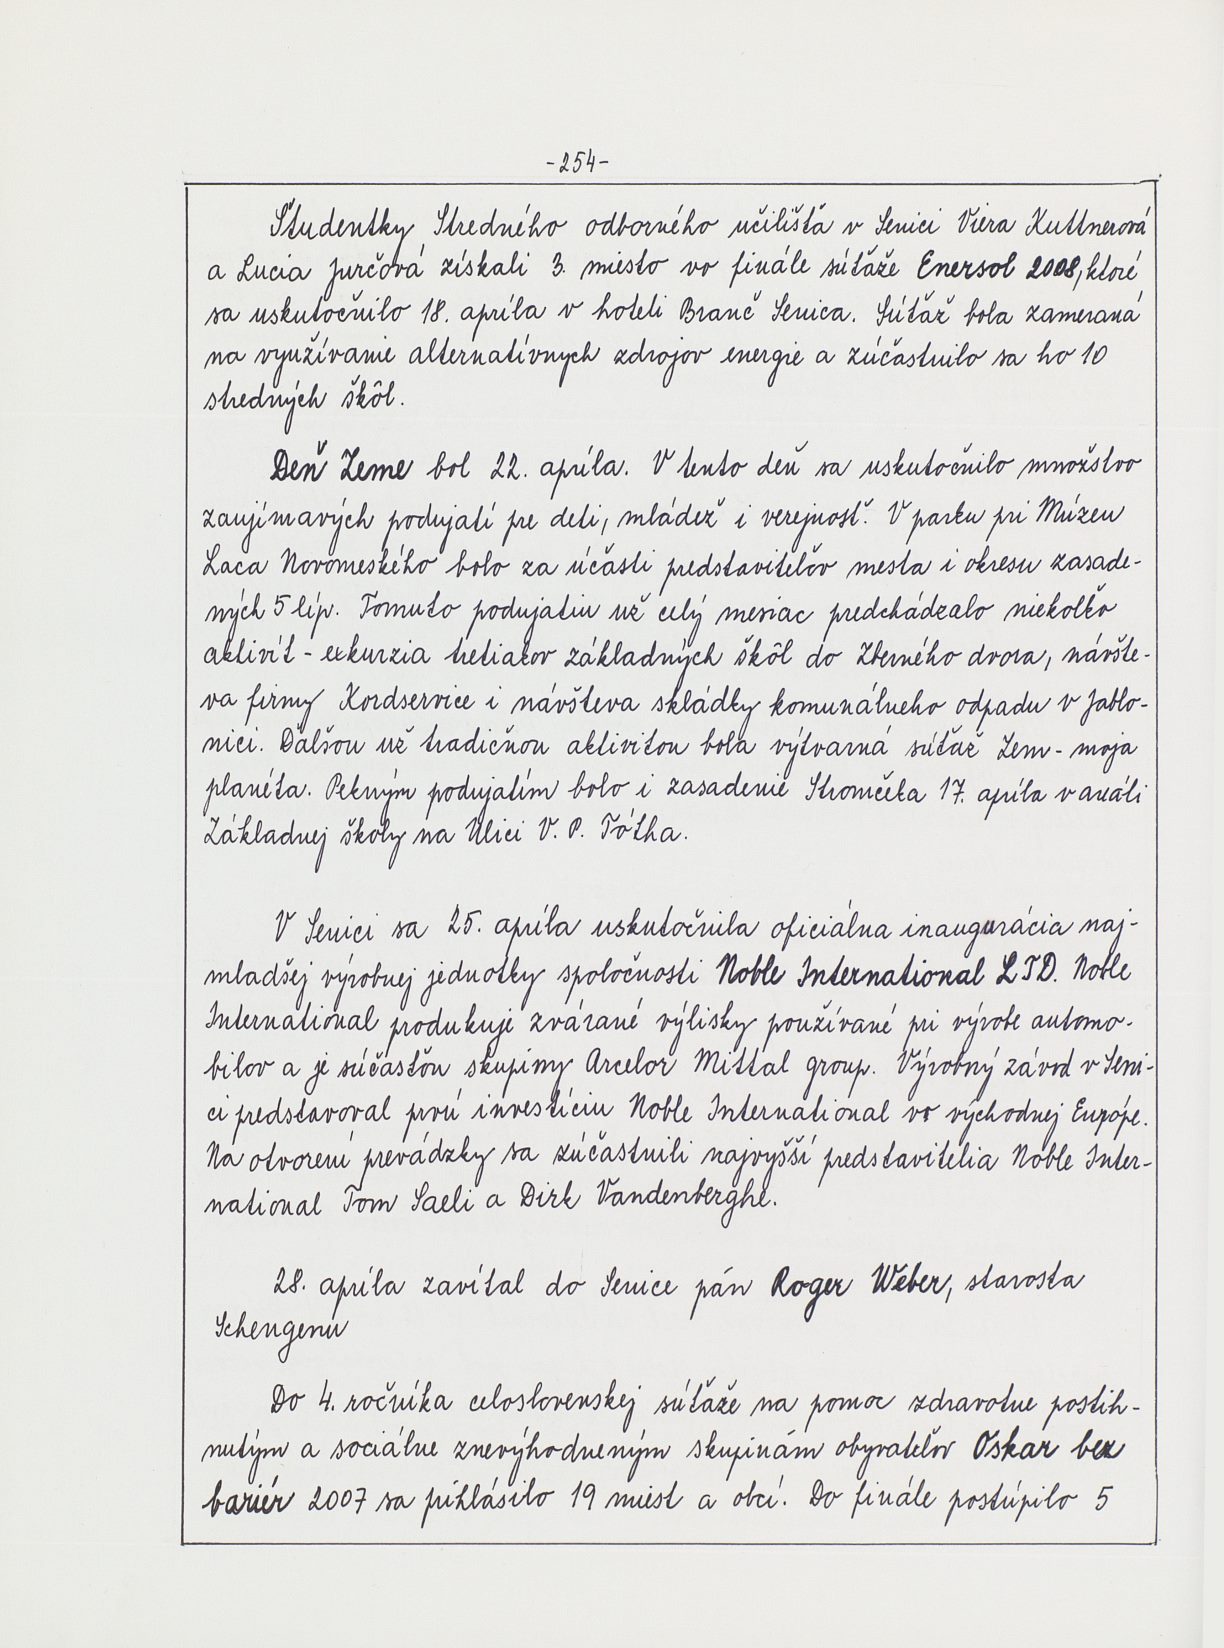 -254-
Študentky Stredného odborného učilišťa v Senici Viera Kuttnerová
a Lucia Jurčová získali 3. miesto vo finále súťaže Enersol 2008, ktoré
sa uskutočnilo 18. apríla v hoteli Branč Senica. Súťaž bola zameraná
na využívanie alternatívnych zdrojov energie a zúčastnilo sa ho 10
stredných škôl.
Deň Zeme bol 22. apríla. V tento deň sa uskutočnilo množstvo
zaujímavých podujatí pre deti, mládež i verejnosť. V parku pri Múzeu
Laca Novomeského bolo za účasti predstaviteľov mesta i okresu zasade-
ných 5 líp. Tomuto podujatiu už celý mesiac predchádzalo niekoľko
aktivít - exkurzia tretiakov základných škôl do Zberného dvora, návšte-
va firmy Kordservice i návšteva skládky komunálneho odpadu v Jablo-
nici. Ďalšou už tradičnou aktivitou bola výtvarná súťaž Zem - moja
planéta. Pekným podujatím bolo i zasadenie Stromčeka 17. apríla v areáli
Základnej školy na Ulici V. P. Tótha.
V Senici sa 25. apríla uskutočnila oficiálna inaugurácia naj-
mladšej výrobnej jednotky spoločnosti Noble International LTD. Noble
International produkuje zvárané výlisky používané pri výrobe automo-
bilov a je súčasťou skupiny Arcelor Mittal group. Výrobný závod v Seni-
ci predstavoval prvú investíciu Noble International vo východnej Európe.
Na otvorení prevádzky sa zúčastnili najvyšší predstavitelia Noble Inter-
national Tom Saeli a Dirk Vandenberghe.
28. apríla zavítal do Senice pán Roger Weber, starosta
Schengenu
Do 4. ročníka celoslovenskej súťaže na pomoc zdravotne postih-
nutým a sociálne znevýhodneným skupinám obyvateľov Oskar bez
bariér 2007 sa prihlásilo 19 miest a obcí. Do finále postúpilo 5